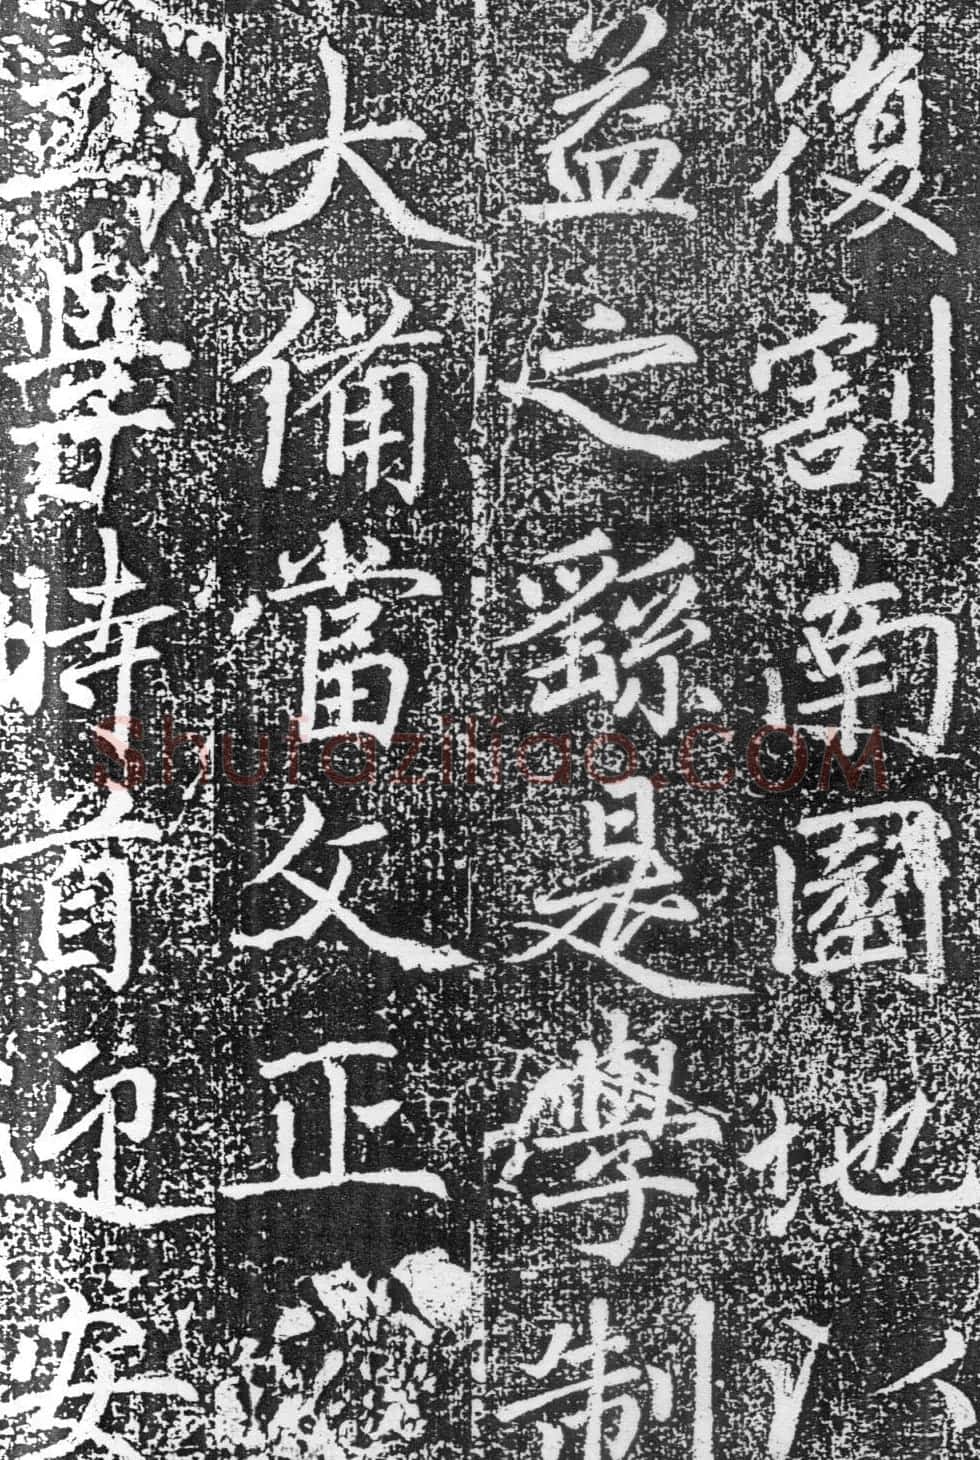 復割南園地以
益之繇是學制
大備當文正
學時首迎安
Shufaziliao.COM